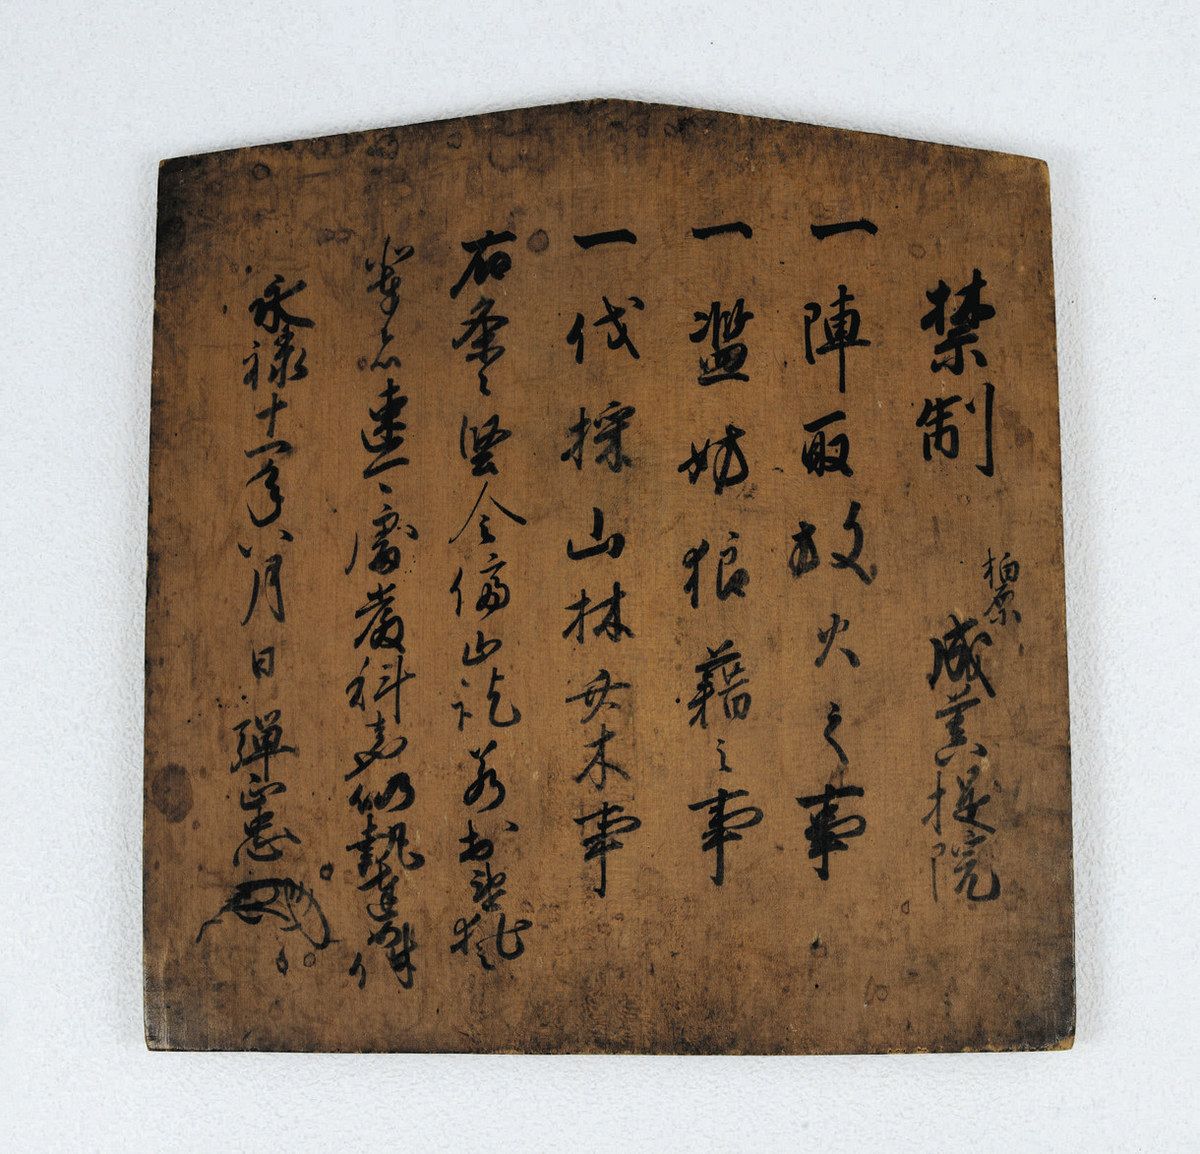 禁制 柏原 成菩提院
一陣取放火之事
一濫妨狼藉之事
一伐採山林竹木事
右条々堅令停止訖若於違犯
輩者速可処厳科者也仍執達如件
永禄十一年八月日 弾正忠